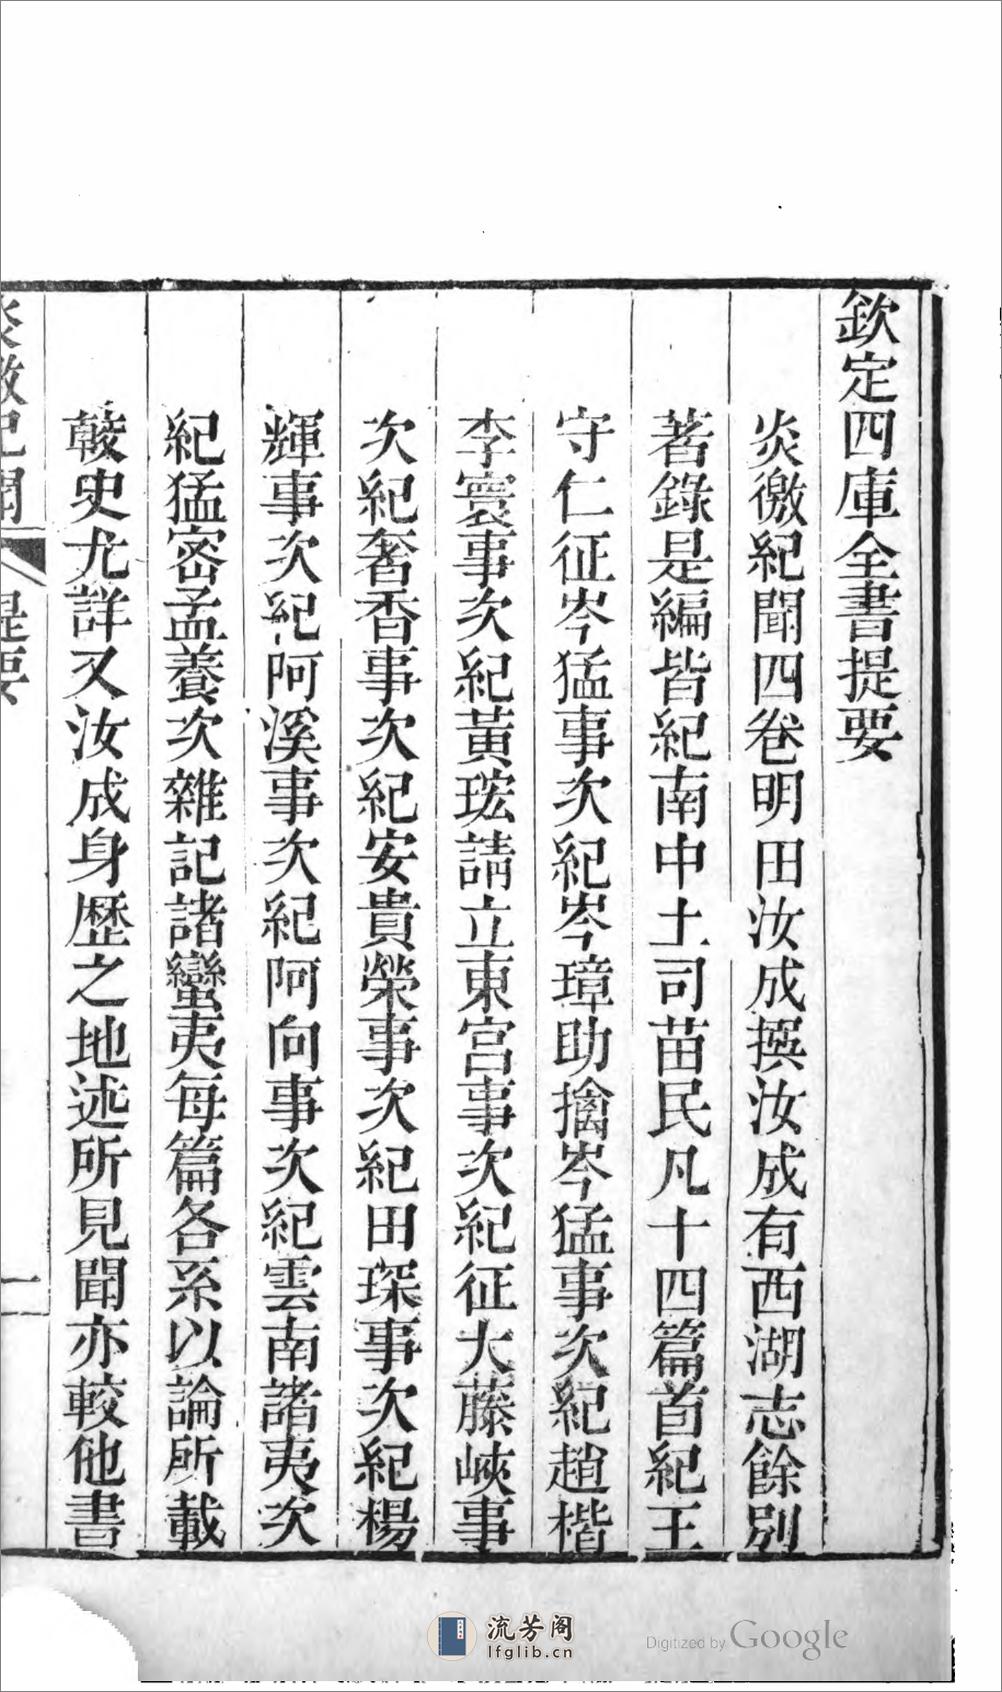 欽定四庫全書提要
炎徼紀聞四卷明田汝成撰汝成有西湖志餘別
著錄是編皆紀南中土司苗民凡十四篇首紀王
守仁征岑猛事次紀岑璋助擒岑猛事次紀趙楷
李寰事次紀黃𤥭請立東宮事次紀征大藤峽事
次紀奢香事次紀安貴榮事次紀田琛事次紀楊
輝事次紀阿溪事次紀阿向事次紀雲南諸夷次
紀猛密孟養次雜記諸蠻夷每篇各系以論所載
較史尤詳又汝成身歷之地述所見聞亦較他書
炎徼紀聞 提要 一
流芳阁
lfglib.cn
Digitized by Google